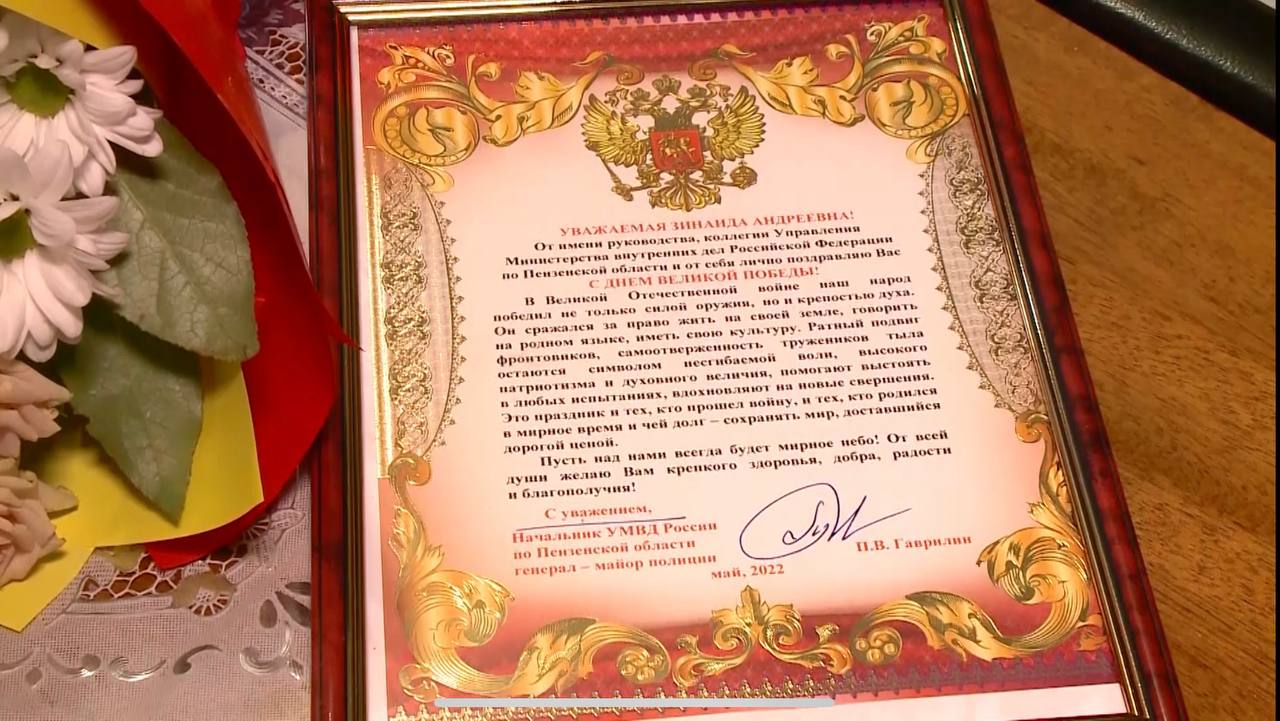 УВАЖАЕМАЯ ЗИНАИДА АНДРЕЕВНА!
От имени руководства, коллегии Управления
Министерства внутренних дел Российской Федерации
по Пензенской области и от себя лично поздравляю Вас
С ДНЕМ ВЕЛИКОЙ ПОБЕДЫ!
В Великой Отечественной войне наш народ
победил не только силой оружия, но и крепостью духа.
Он сражался за право жить на своей земле, говорить
на родном языке, иметь свою культуру. Ратный подвиг
фронтовиков, самоотверженность тружеников тыла
остаются символом несгибаемой воли, высокого
патриотизма и духовного величия, помогают выстоять
в любых испытаниях, вдохновляют на новые свершения.
Это праздник и тех, кто прошел войну, и тех, кто родился
в мирное время и чей долг – сохранять мир, доставшийся
дорогой ценой.
Пусть над нами всегда будет мирное небо! От всей
души желаю Вам крепкого здоровья, добра, радости
и благополучия!
С уважением,
Начальник УМВД России
по Пензенской области
генерал – майор полиции
П.В. Гаврилин
май, 2022